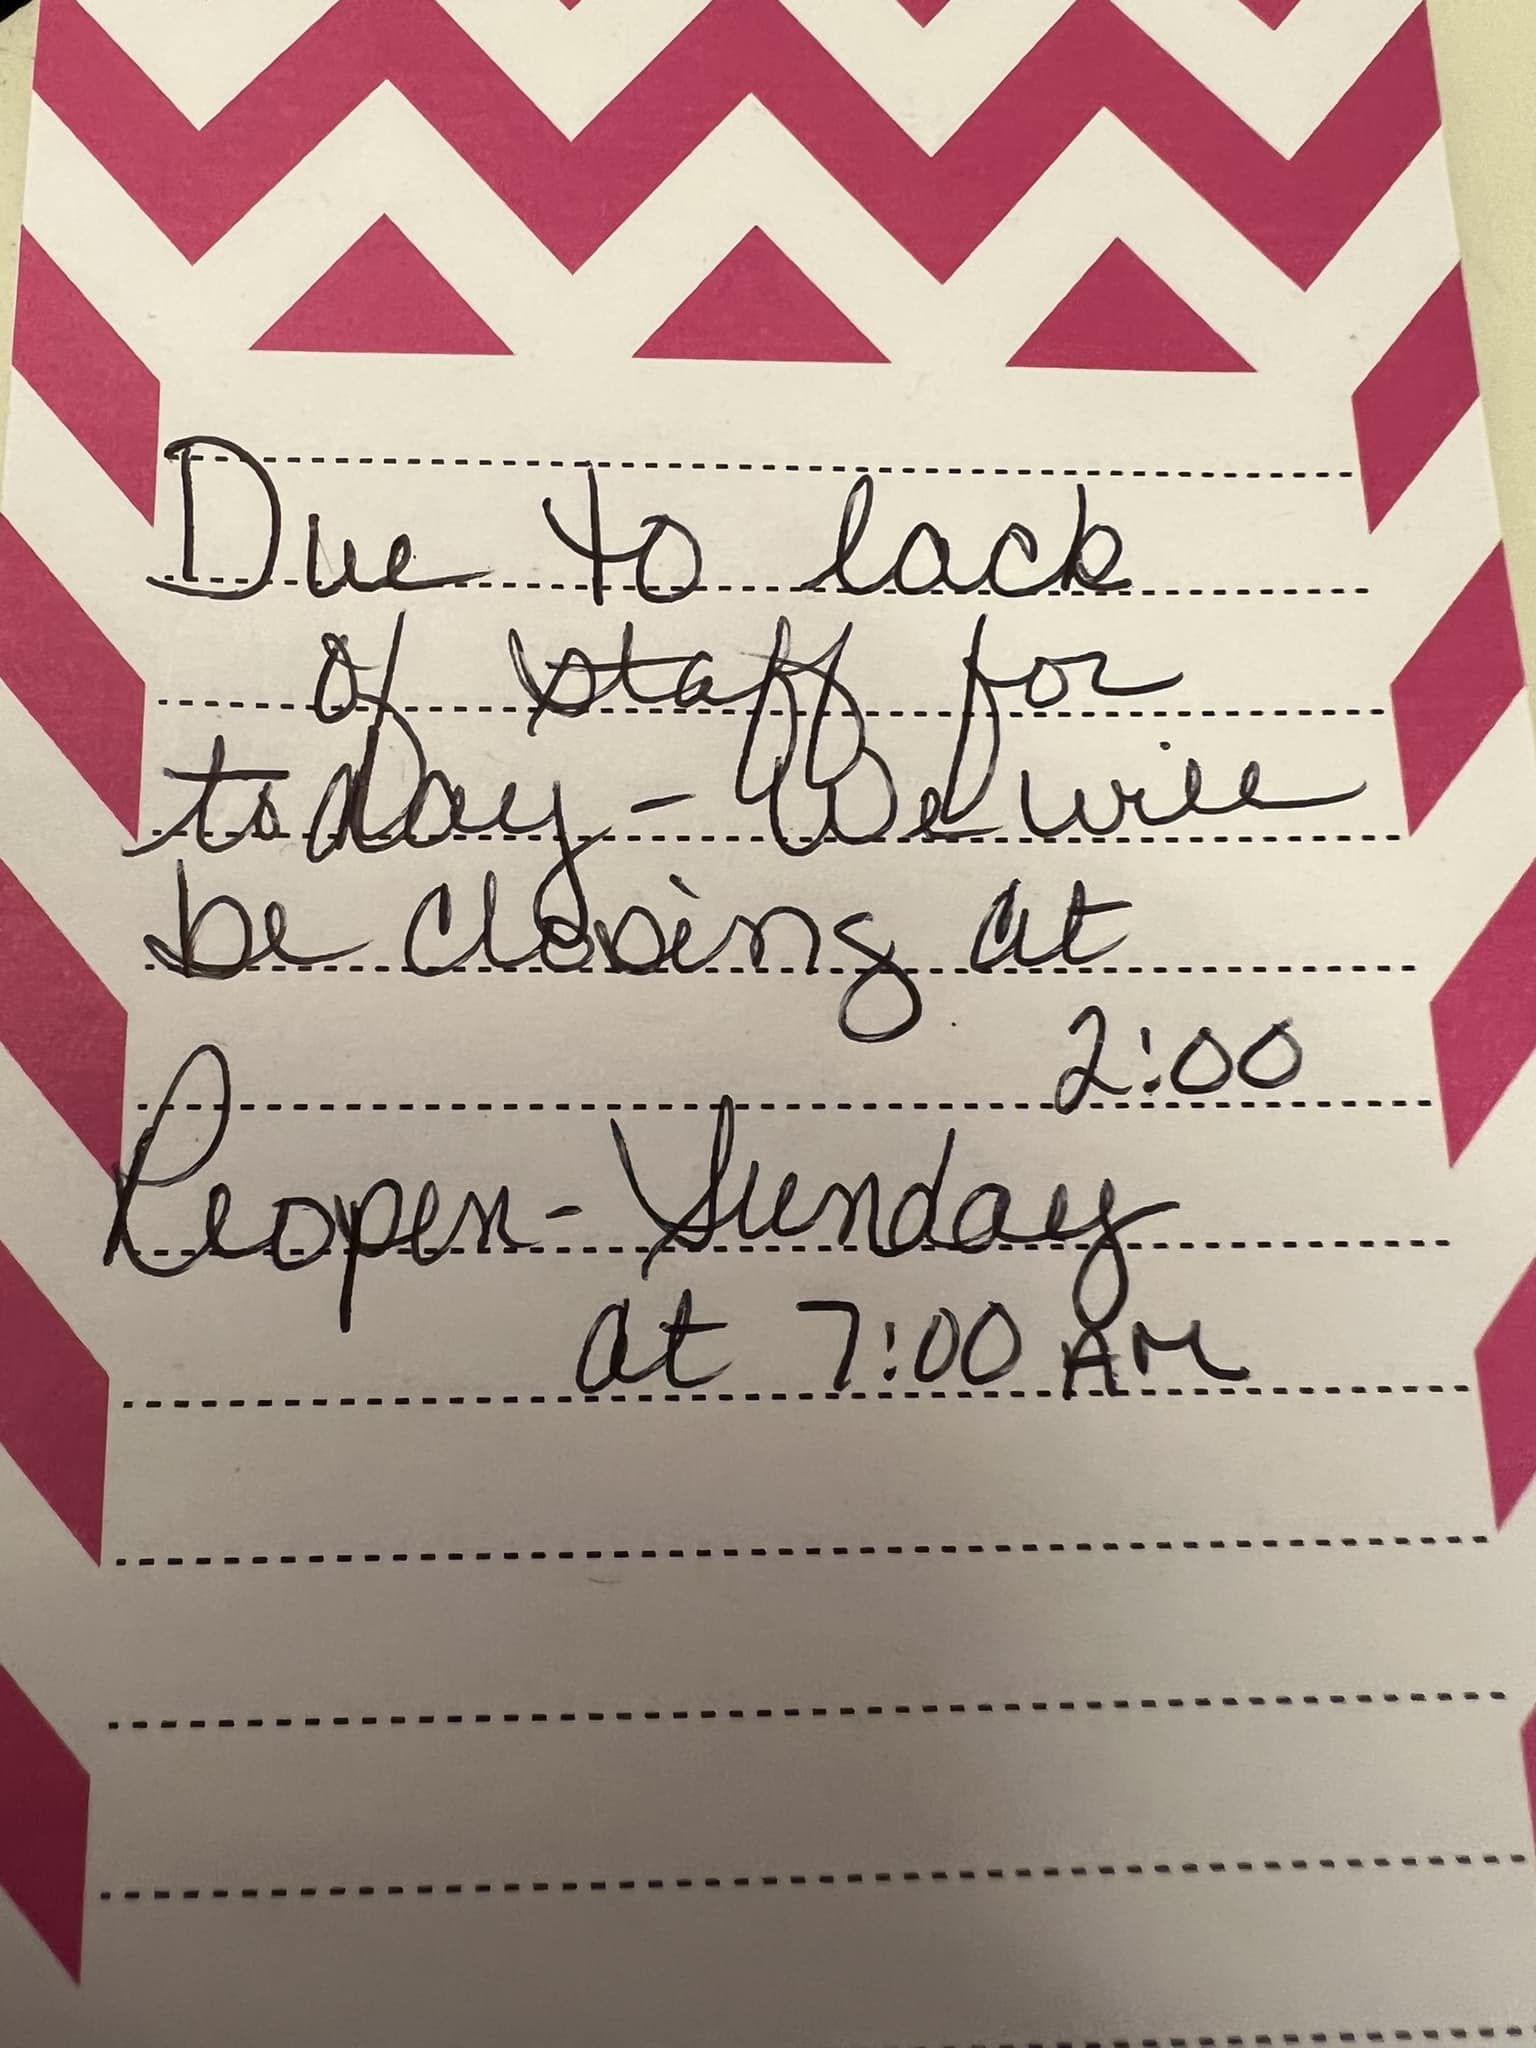 Due to lack
of staff for
today - We will
be closing at
2:00
Reopen - Sunday
at 7:00 AM